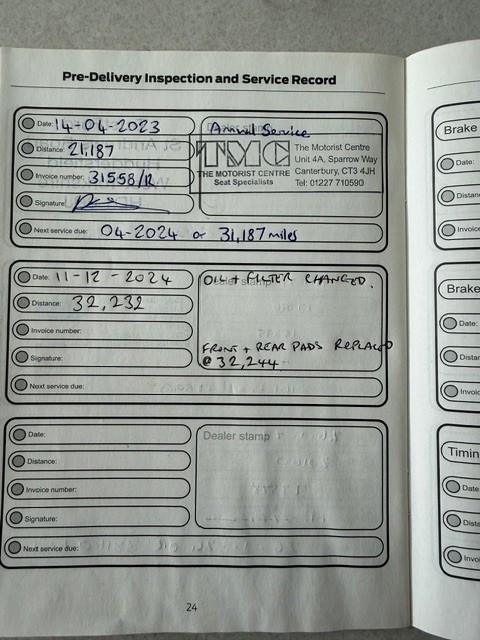 Pre-Delivery Inspection and Service Record
Date: 14-04-2023
Distance: 21,187
Invoice number: 31558/R
Signature:
Dealer stamp
Annual Service
TMC
THE MOTORIST CENTRE
Seat Specialists
The Motorist Centre
Unit 4A, Sparrow Way
Canterbury, CT3 4JH
Tel: 01227 710590
Next service due: 04-2024 or 31,187 miles
Date: 11-12-2024
Distance: 32,232
Invoice number:
Signature:
Dealer stamp
OIL + FILTER CHANGED.
FRONT + REAR PADS REPLACED
@ 32,244
Next service due:
Date:
Distance:
Invoice number:
Signature:
Dealer stamp
Next service due:
24
Brake
Date:
Distan
Invoic
Brake
Date:
Distar
Invoic
Timin
Date
Dista
Invoi